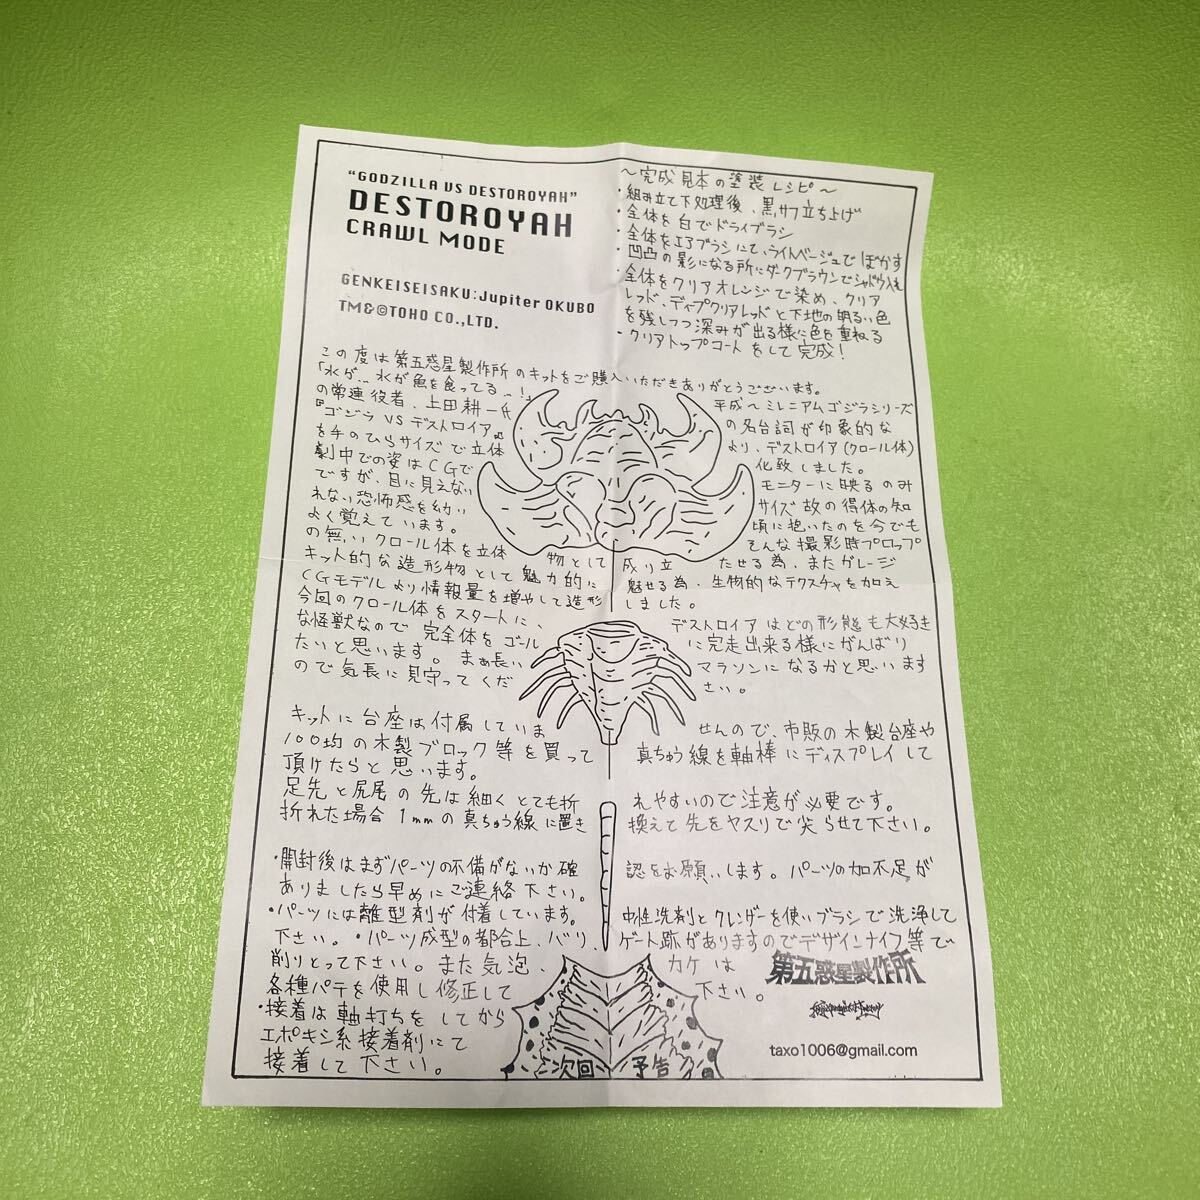 "GODZILLA VS DESTOROYAH"
DESTOROYAH
CRAWL MODE
GENKEISEISAKU:Jupiter OKUBO
TM&©TOHO CO.,LTD.
～完成見本の塗装レシピ～
・組み立て下処理後、黒サフ立ち上げ
・全体を白でドライブラシ
・全体をエアブラシにて、ライトベージュでぼかす
・凹凸の影になる所にダークブラウンでシャドウ入れ
・全体をクリアオレンジで染め、クリア
レッド、ディープクリアレッドと下地の明るい色
を残しつつ深みが出る様に色を重ねる
・クリアトップコートをして完成！
この度は第五惑星製作所のキットをご購入いただきありがとうございます。
「水が…水が魚を食ってる…！」 平成～ミレニアムゴジラシリーズ
の常連役者、上田耕一氏 の名台詞が印象的な
『ゴジラVSデストロイア』 より、デストロイア(クロール体)
を手のひらサイズで立体 化致しました。
劇中での姿はCGで モニターに映るのみ
ですが、目に見えない サイズ故の得体の知
れない恐怖感を幼い 頃に抱いたのを今でも
よく覚えています。 そんな撮影時プロップ
の無いクロール体を立体 物として 成り立 たせる為、またガレージ
キット的な造形物として魅力的に 魅せる為、生物的なテクスチャを加え
CGモデルより情報量を増やして造形 しました。
今回のクロール体をスタートに、 デストロイアはどの形態も大好き
な怪獣なので完全体をゴール に完走出来る様にがんばり
たいと思います。まぁ長い マラソンになるかと思います
ので気長に見守ってくだ さい。
キットに台座は付属していま せんので、市販の木製台座や
100均の木製ブロック等を買って 真ちゅう線を軸棒にディスプレイして
頂けたらと思います。
足先と尻尾の先は細くとても折 れやすいので注意が必要です。
折れた場合1mmの真ちゅう線に置き 換えて先をヤスリで尖らせて下さい。
・開封後はまずパーツの不備がないか確 認をお願いします。パーツの加不足が
ありましたら早めにご連絡下さい。
・パーツには離型剤が付着しています。 中性洗剤とクレンザーを使いブラシで洗浄して
下さい。・パーツ成型の都合上、バリ、 ゲート跡がありますのでデザインナイフ等で
削りとって下さい。また気泡、 カケは
各種パテを使用し修正して 下さい。
・接着は軸打ちをしてから
エポキシ系接着剤にて
接着して下さい。
次回 予告
第五惑星製作所
taxo1006@gmail.com